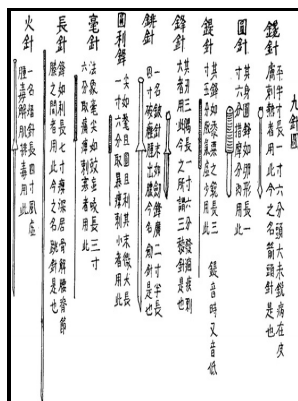 九針圖
鑱針
平半寸長一寸六分頭大末銳病在皮
膚刺熱者用此今之名箭頭針是也
圓針
其身圓鋒如卵形長一
寸六分揩摩分肉用此
鍉針
其鋒如黍粟之銳長三
寸五分脈氣虛少用此
鍉音時又音低
鋒針
其刃三隅長一寸六分發痼疾刺
大者用此今之所謂三稜針是也
鈹針
一名鈹針末如劍鋒廣二寸半長
四寸破癰腫出膿今名劍針是也
圓利針
尖如氂且圓且利其末微大長
一寸六分取暴痺刺小者用此
毫針
法象毫尖如蚊虻喙長三寸
六分取痛痺刺寒者用此
長針
鋒如利長七寸痺深居骨解腰脊節
腠之間者用此今之名跳針是也
火針
一名燔針長四寸風虛
腫毒解肌排毒用此